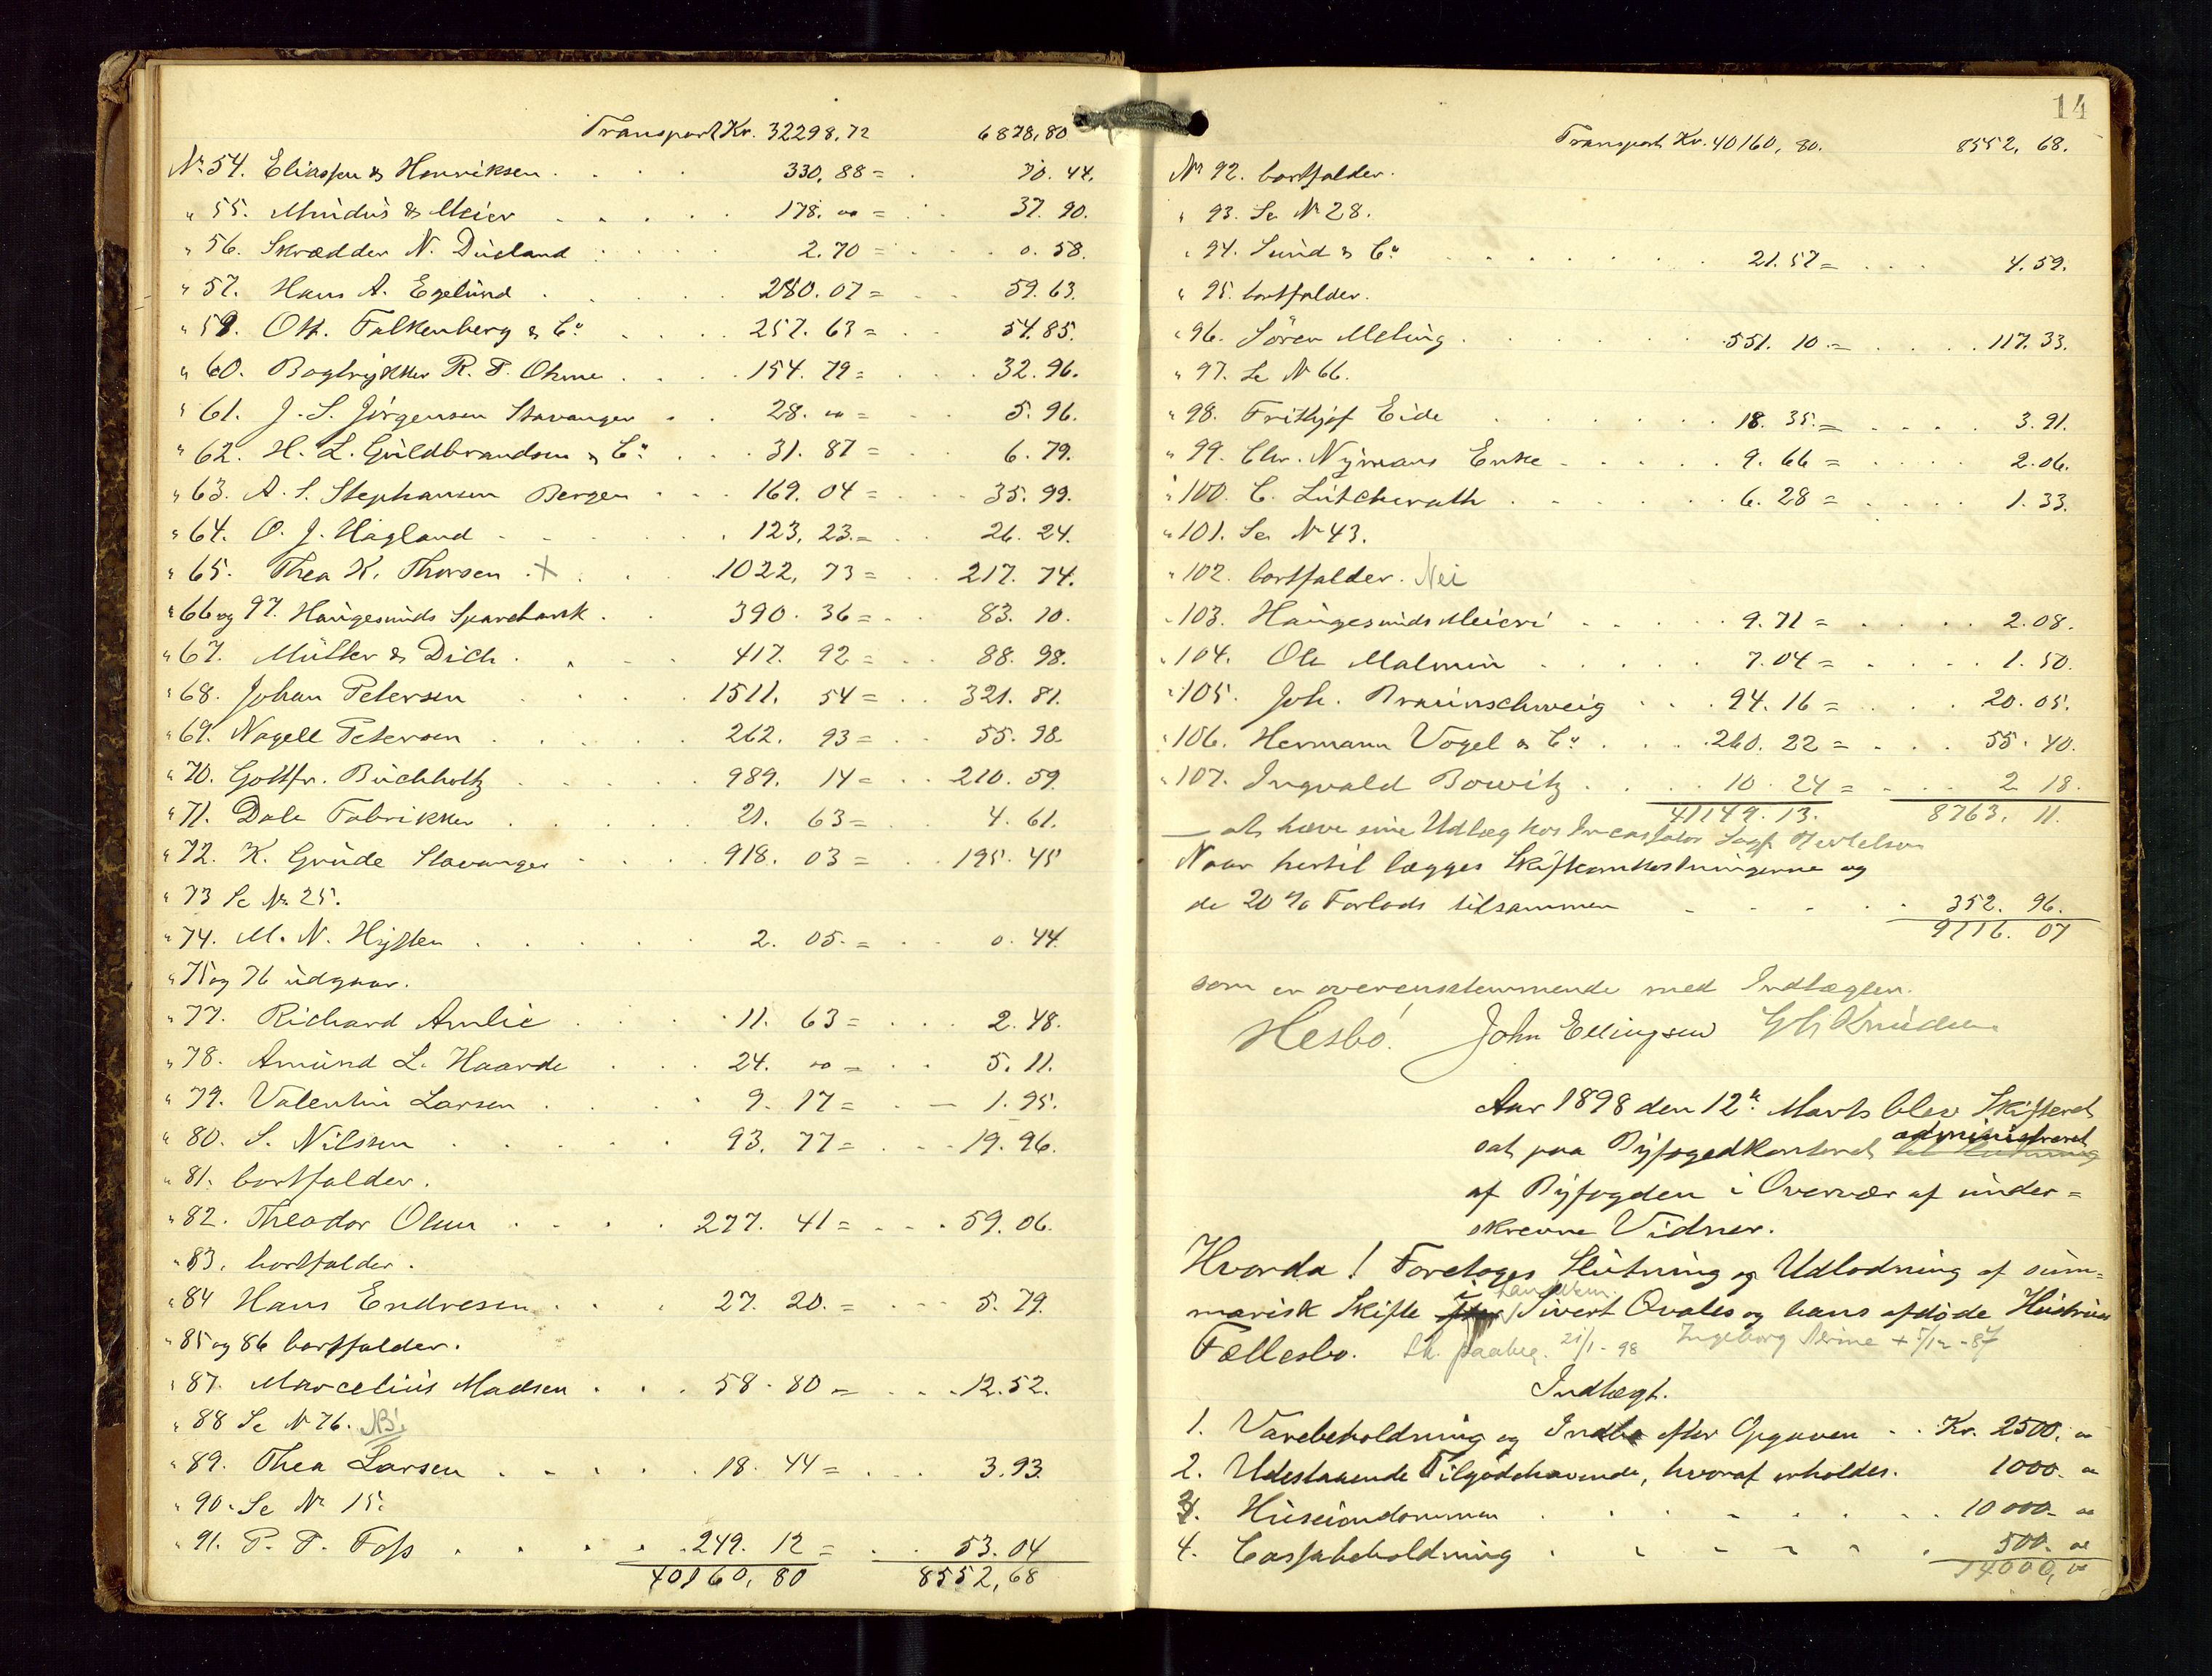 Transport Kr. 32298,72 6878,80
No 54. Eliassen & Henriksen . . . 330,88 = . 70.44.
" 55. Mundus & Meier . . . . 178. 00 = . . 37. 90.
" 56. Skrædder N. Dueland . . . 2.70 = . . 0.58.
" 57. Hans A. Egelund . . . . 280.07 = . . 59.63.
" 59. Ott. Falkenberg & Co . . . . 257.63 = . . 54.85.
" 60. Bogtrykker R. T. Ohme . . . . 154.79 = . . . 32.96.
" 61. J. S. Jörgensen Stavanger . . 28. 00 = 5.96.
" 62. H. L. Guldbrandsen & Co . . . . 31. 87 = . . 6.79.
" 63. A. S. Stephansen Bergen . . . 169.04 = . . . 35.99.
" 64. O. J. Hagland . . . . . 123,23. = . . . 26.24.
" 65. Thea K. Thorsen . + . . . 1022,73 = . . 217.74.
" 66 og 97. Haugesunds Sparebank . . 390.36 = . . 83.10.
" 67. Müller & Dich . . . . 417.92 = . . 88.98.
" 68. Johan Petersen . . . . 1511.54 = . . 321.81.
" 69. Nagell Petersen . . . . . 262.93 = . . 55.98.
" 70. Gottfr. Buchholtz . . . . . 989.14 = . . 210.59
" 71. Dale Fabrikker . . . . . 21.63 = . . 4.61.
" 72. K. Grude Stavanger . . . . 918.03 = . . 195.45
" 73 Se No 25.
" 74. M. N. Hysten . . . . . 2.05. = . . 0.44.
" 75 og 76 udgaar.
" 77. Richard Amlie . . . . 11.63 = . . . 2.48.
" 78. Amund L. Haarde . . . 24. 00 = . . 5.11.
" 79. Valentin Larsen . . . . 9.17 = . . 1.95.
" 80. S. Nilssen . . . . . 93.77 = . . . 19.96.
" 81. bortfalder.
" 82. Theodor Olsen . . . . 277.41 = . . . 59.06.
" 83. bortfalder.
" 84 Hans Endresen . . . 27.20. = . . . 5.79.
" 85 og 86 bortfalder.
" 87. Marcelius Madsen . . . 58.80 = . . . 12.52.
" 88 Se No 76. NB!
" 89. Thea Larsen . . . . . 18.44 = . . . 3.93.
" 90. Se No 15.
" 91. P. T. Foss . . . . . 249.12 = . . 53.04
40160,80 8552,68
14
Transport Kr. 40160,80. 8552,68.
No 92. bortfalder.
" 93. Se No 28.
" 94. Sund & Co . . . . . . . 21.57 = . . . 4.59.
" 95. bortfalder.
" 96. Sören Meling . . . . . . . 551.10. = . . . . 117.33.
" 97. Se No 66.
" 98. Frithjof Eide . . . . . . 18.35. = . . . . 3.91.
" 99. Chr. Nymans Enke . . . . . 9.66 = . . . . 2.06.
" 100. C. Lütcherath . . . . . . 6.28 = . . . . 1.33.
" 101. Se No 43.
" 102. bortfalder. Nei
" 103. Haugesunds Meieri . . . . . 9.71 = . . . . . 2.08.
" 104. Ole Malmin . . . . . 7.04 = . . . . . 1.50.
" 105. Joh. Braunschweig . . . 94.16 = . . . . 20.05.
" 106. Hermann Vogel & Co . . . . 260.22 = . . . . 55.40.
" 107. Ingvald Bowitz . . . . 10.24 = . . . 2 18.
41149.13. 8763,11.
— at hæve sine Udlæg hos Incassator Sagf
Naar hertil lægges Skifteomkostningerne og
de 20 % Forlods tilsammen . . . . . 352.96.
9116.07
som er overensstemmende med Indlægten.
Hesbö. John Ellingsen Knudsen
Aar 1898 den 12te Marts blev Skifteret
sat paa Byfogedkontoret administreret
af Byfogden i Overvær af under=
skrevne Vidner.
Hvorda! Foretoges Slutning og Udlodning af sum=
marisk Skifte i Sivert Qvales og hans afdöde Hustrus
Fællesbo. 21/1 - 98 Ingeborg Serine + 5/12 - 87
Indtægt.
1. Varebeholdning og Indbo efter Opgaven . . Kr. 2500, 00
2. Udestaaende Tilgodehavende, hvoraf erholdes. 1000. 00
3. Huseiendommen . . . . . . . 10000. 00
4. Cassabeholdning . . . . . . 500. 00
14000, 00